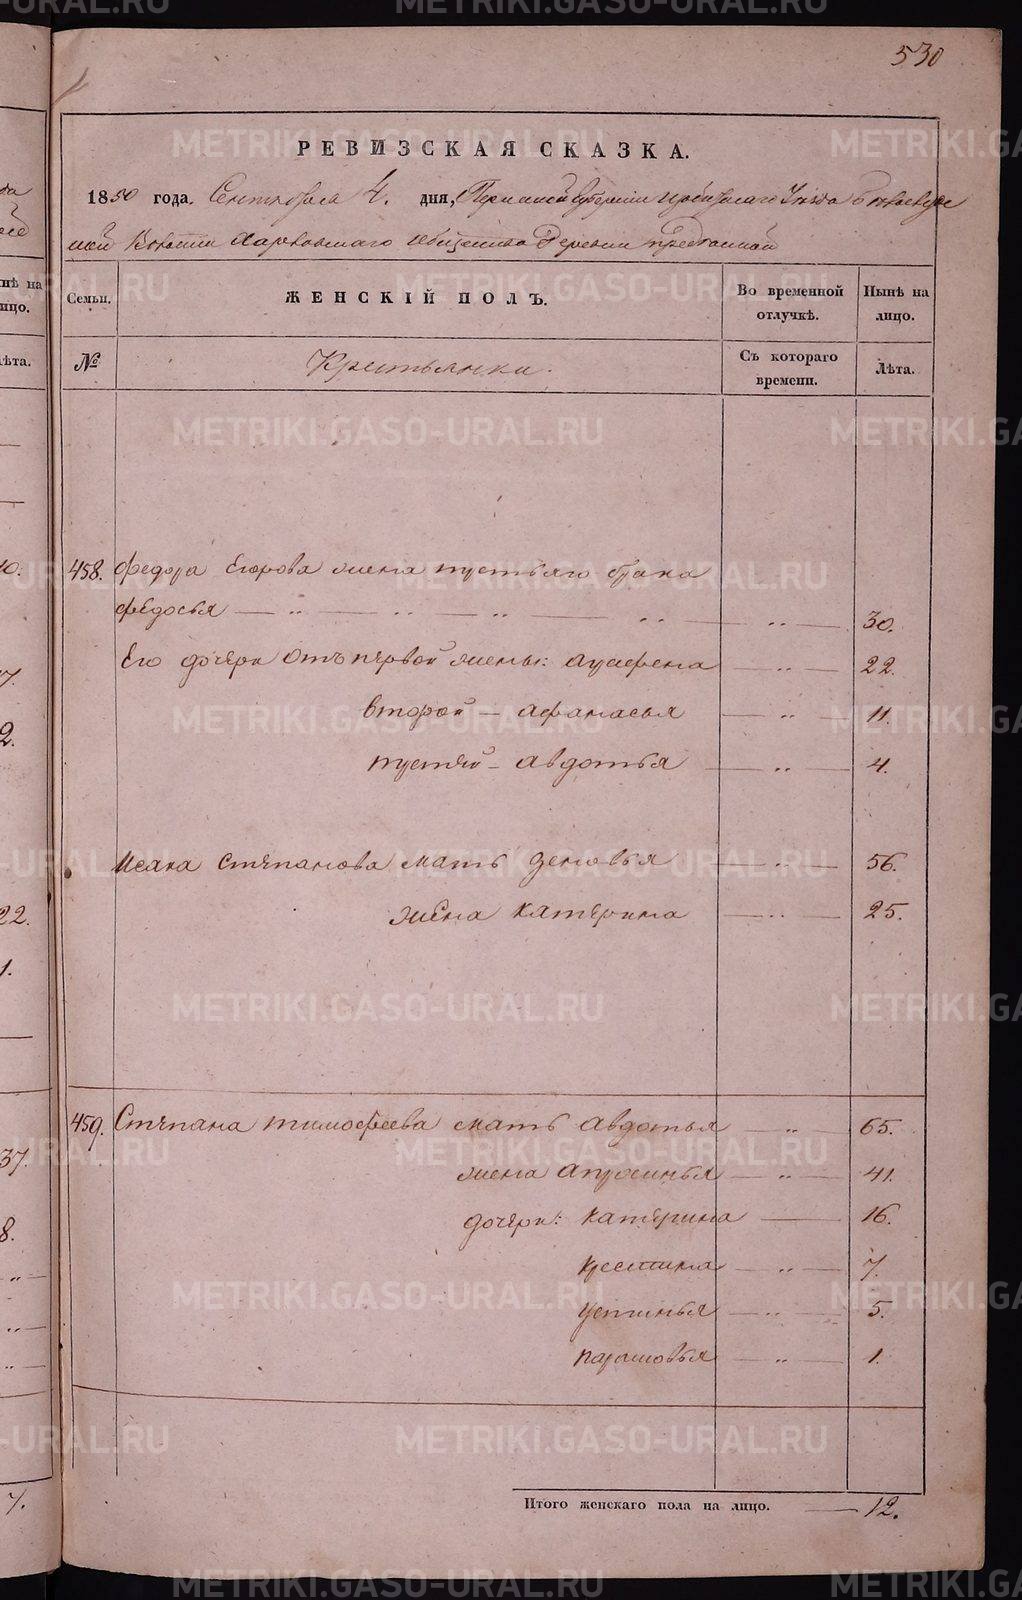 530
РЕВИЗСКАЯ СКАЗКА.
1850 года. Сентября 4. дня, Пермской Губернии Ирбитскаго Уезда
Волости Харловскаго общества Деревни
Семьи.
ЖЕНСКІЙ ПОЛЪ.
Во временной отлучкѣ.
Нынѣ на лицо.
№
Крестьянки.
Съ котораго времени.
Лѣта.
458. Федора Егорова жена третьяго брака
Федосья — „ — „ — „ — „ — „ — 30.
Его дочери отъ первой жены: Аграфена — „ — 22.
второй — Афанасья — „ — 11.
третей — Авдотья — „ — 4.
Исака Степанова мать Зеновья — „ — 56.
жена Катерина — „ — 25.
459. Степана Тимофеева мать Авдотья — „ — 65.
жена Апросинья — „ — 41.
дочери: Катерина — 16.
Крестина — „ — 7.
Устинья — „ — 5.
Парасковья — „ — 1.
Итого женскаго пола на лицо. — 12.
METRIKI.GASO-URAL.RU